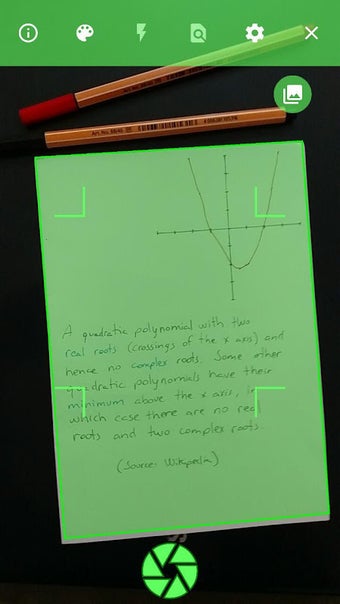 A quadratic polynomial with two
real roots (crossings of the x axis) and
hence no complex roots. Some other
quadratic polynomials have their
minimum above the x axis, in
which case there are no real
roots and two complex roots.
(Source: Wikipedia)